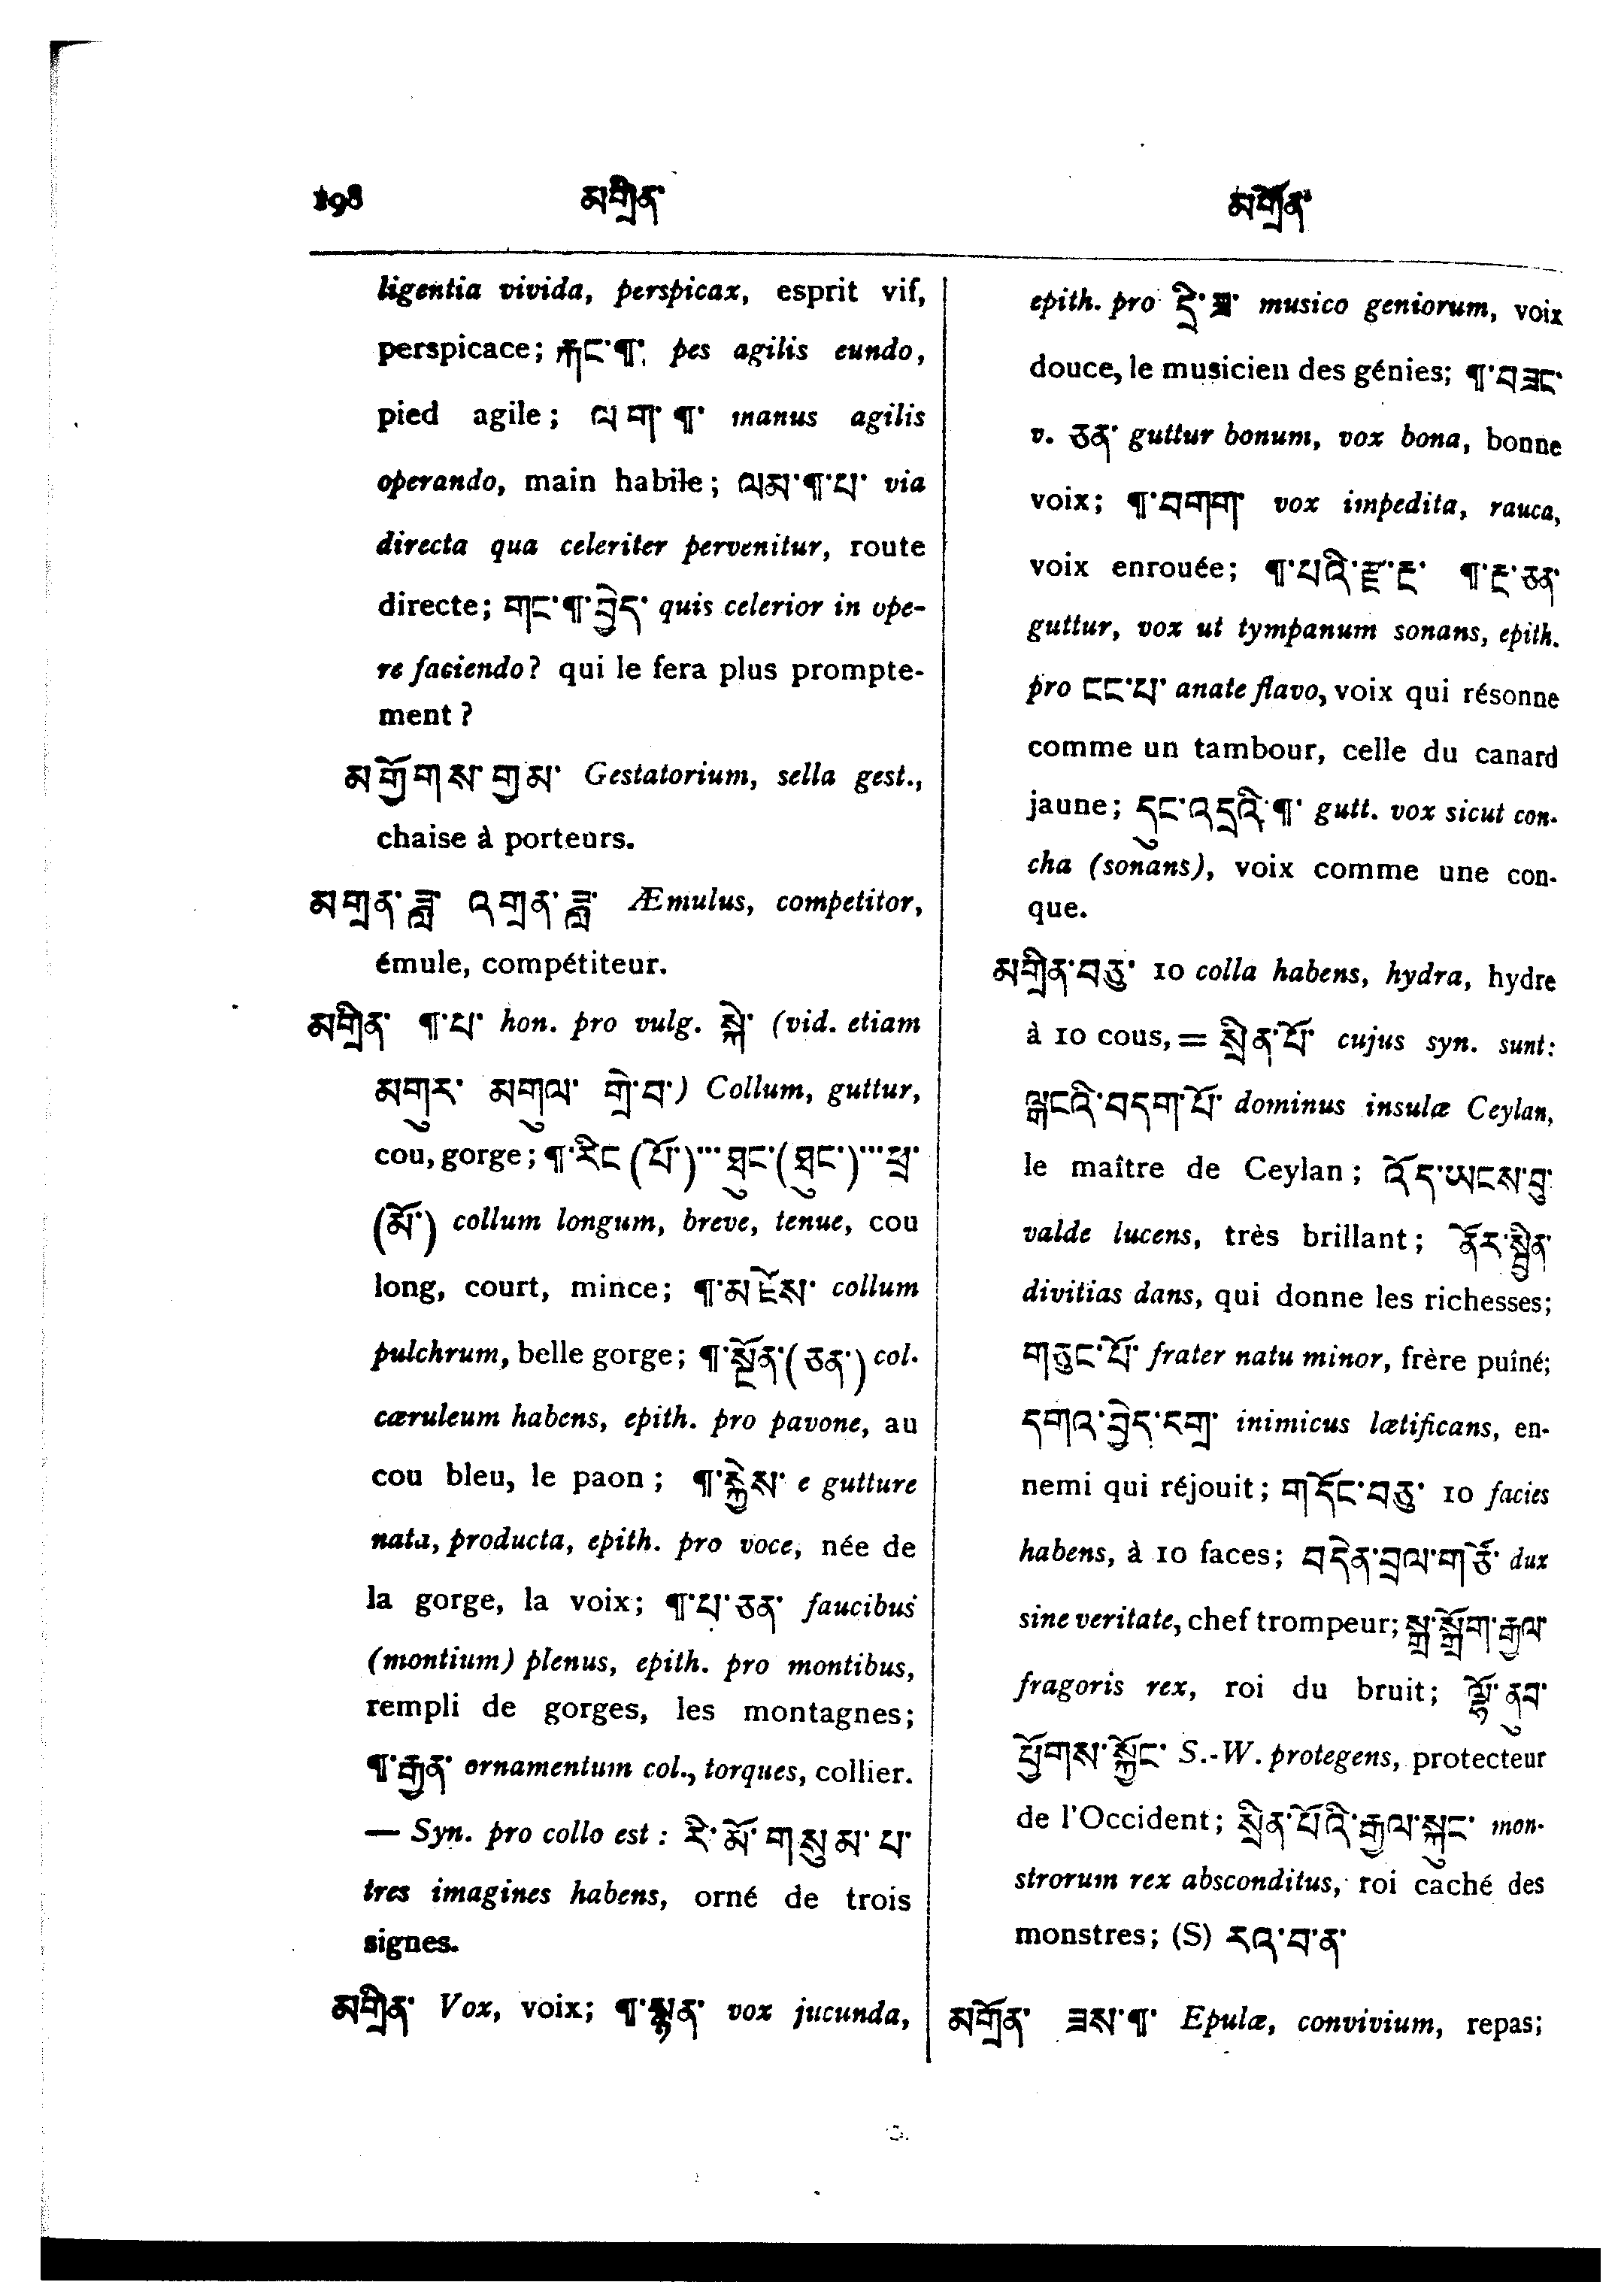 198 མགྲིན་ མགྲོན་
ligentia vivida, perspicax, esprit vif,
perspicace; རྐང་¶་ pes agilis eundo,
pied agile; ལག་¶་ manus agilis
operando, main habile; ལམ་¶་པ་ via
directa qua celeriter pervenitur, route
directe; གང་¶་བྱེད་ quis celerior in ope-
re faciendo? qui le fera plus prompte-
ment?
མགྱོགས་གྱམ་ Gestatorium, sella gest.,
chaise à porteurs.
མགྲན་ཟླ་ འགྲན་ཟླ་ Æmulus, competitor,
émule, compétiteur.
མགྲིན་ ¶་པ་ hon. pro vulg. སྐེ་ (vid. etiam
མགུར་ མགུལ་ གྲེ་བ་) Collum, guttur,
cou, gorge; ¶་རིང (པོ་)... ཐུང་(ཐུང་)... ཕྲ་
(མོ་) collum longum, breve, tenue, cou
long, court, mince; ¶་མཛེས་ collum
pulchrum, belle gorge; ¶་སྔོན་(ཅན་) col.
cæruleum habens, epith. pro pavone, au
cou bleu, le paon; ¶་སྐྱེས་ e gutture
nata, producta, epith. pro voce, née de
la gorge, la voix; ¶་པ་ཅན་ faucibus
(montium) plenus, epith. pro montibus,
rempli de gorges, les montagnes;
¶་རྒྱན་ ornamentum col., torques, collier.
— Syn. pro collo est: རི་མོ་གསུམ་པ་
tres imagines habens, orné de trois
signes.
མགྲིན་ Vox, voix; ¶་སྙན་ vox jucunda,
epith. pro དྲི་ཟ་ musico geniorum, voix
douce, le musicien des génies; ¶་བཟང་
v. ཅན་ guttur bonum, vox bona, bonne
voix; ¶་བགག་ vox impedita, rauca,
voix enrouée; ¶་པའི་རྫ་རྔ་ ¶་རྔ་ཅན་
guttur, vox ut tympanum sonans, epith.
pro ངང་པ་ anate flavo, voix qui résonne
comme un tambour, celle du canard
jaune; དུང་འདྲའི་¶་ gutt. vox sicut con-
cha (sonans), voix comme une con-
que.
མགྲིན་བཅུ་ 10 colla habens, hydra, hydre
à 10 cous, = སྲིན་པོ་ cujus syn. sunt:
ལྒངའི་བདག་པོ་ dominus insulæ Ceylan,
le maître de Ceylan; འོད་ཡངས་བུ་
valde lucens, très brillant; ནོར་སྦྱིན་
divitias dans, qui donne les richesses;
གཅུང་པོ་ frater natu minor, frère puîné;
དགའ་བྱེད་དགྲ་ inimicus lætificans, en-
nemi qui réjouit; གདོང་བཅུ་ 10 facies
habens, à 10 faces; བདེན་བྲལ་གཙོ་ dux
sine veritate, chef trompeur; སྒྲ་སྒྲོག་རྒྱལ་
fragoris rex, roi du bruit; ལྷོ་ནུབ་
ཕྱོགས་སྐྱོང་ S.-W. protegens, protecteur
de l'Occident; སྲིན་པོའི་རྒྱལ་སྐུང་ mon-
strorum rex absconditus, roi caché des
monstres; (S) རཱའ་བ་ན་
མགྲོན་ ཟས་¶་ Epulæ, convivium, repas;